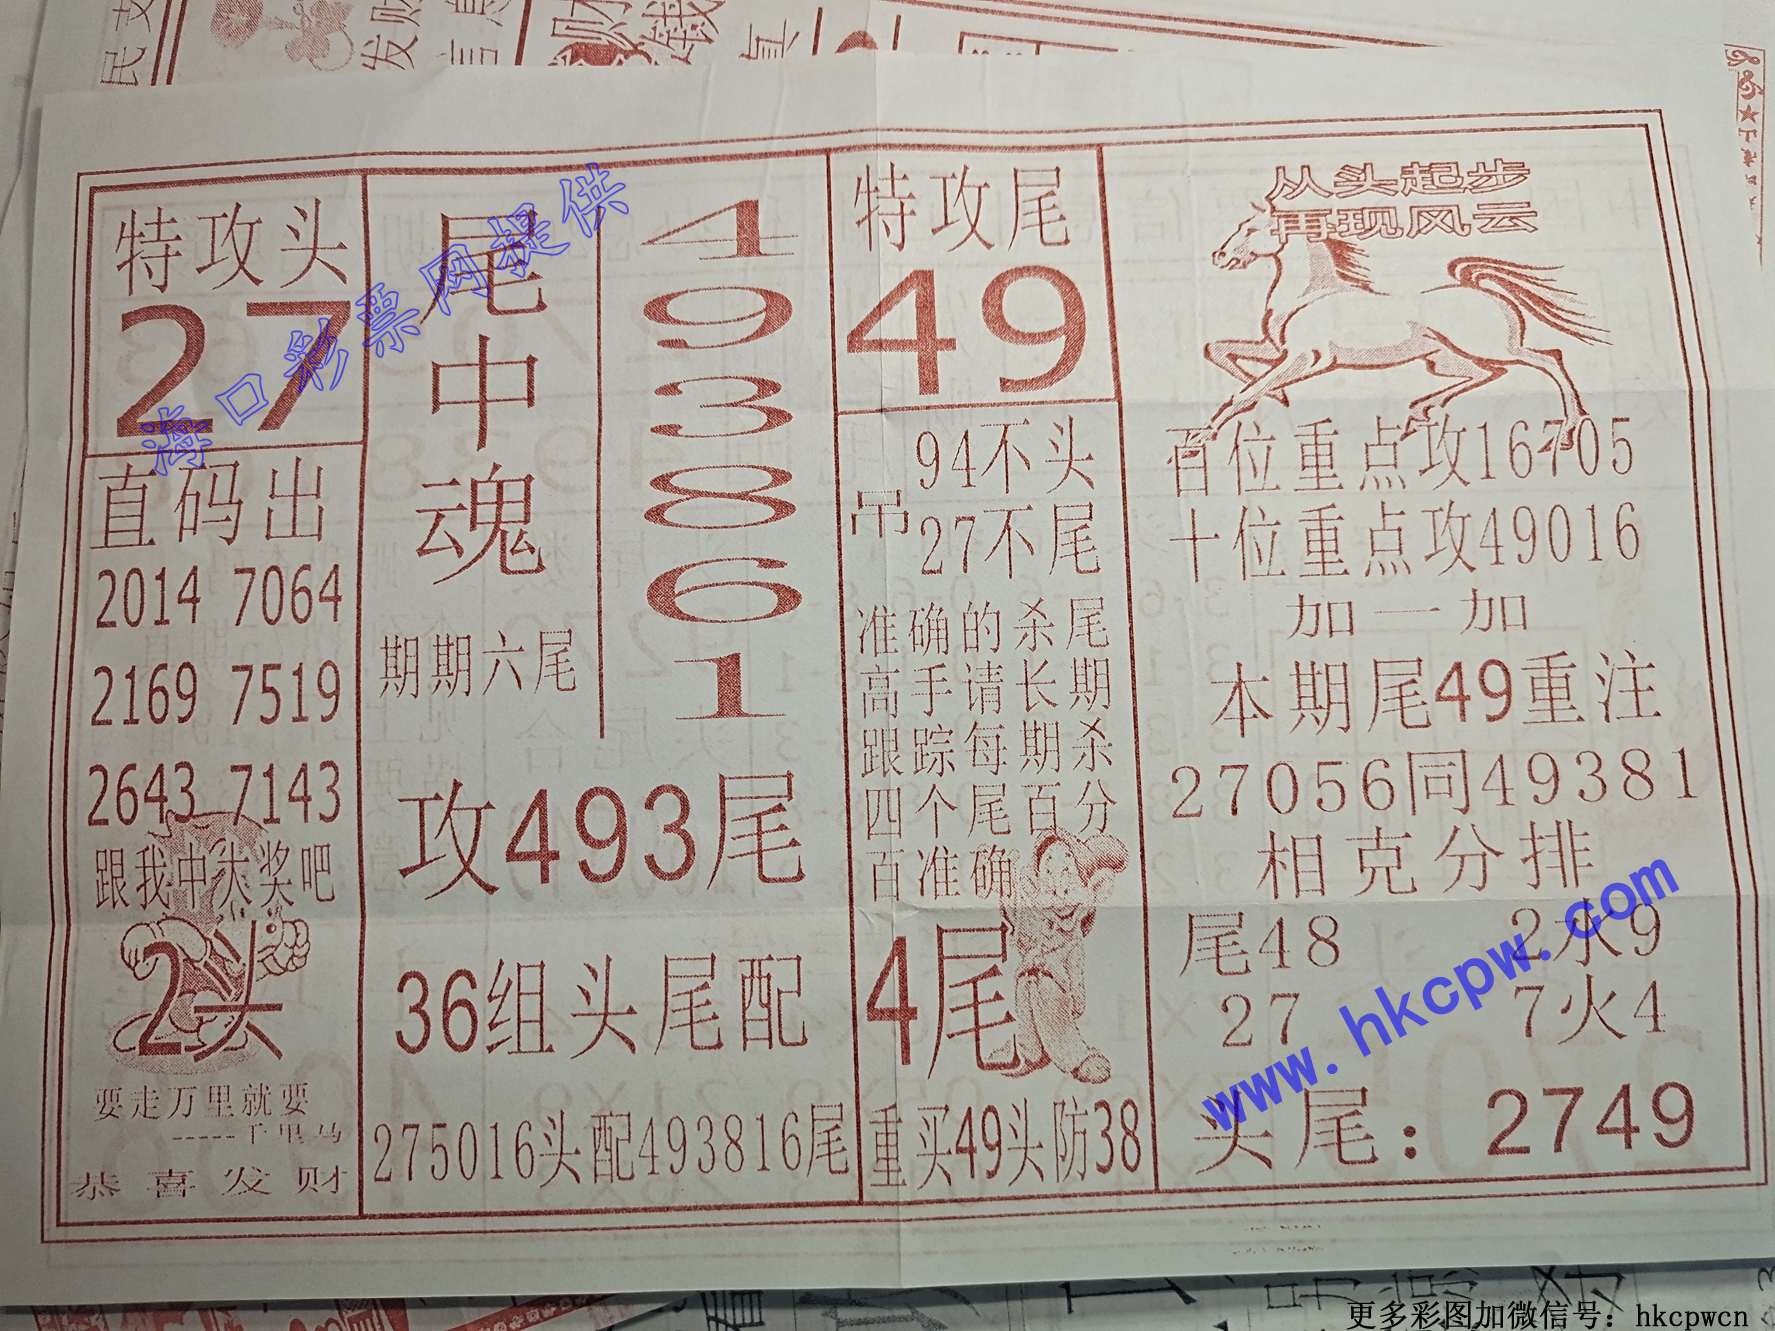 特攻头
27
直码出
2014 7064
2169 7519
2643 7143
跟我中大奖吧
2头
要走万里就要
-----千里马
恭喜发财
尾中魂
期期六尾
4
9
3
8
6
1
攻493尾
36组头尾配
275016头配493816尾
特攻尾
49
吊
94不头
27不尾
准确的杀尾
高手请长期
跟踪每期杀
四个尾百分
百准确
4尾
重买49头防38
从头起步
再现风云
百位重点攻16705
十位重点攻49016
加一加
本期尾49重注
27056同49381
相克分排
尾48 2水9
27 7火4
头尾：2749
海口彩票网提供
www.hkcpw.com
更多彩图加微信号：hkcpwcn
民支
发财
信息
财
钱